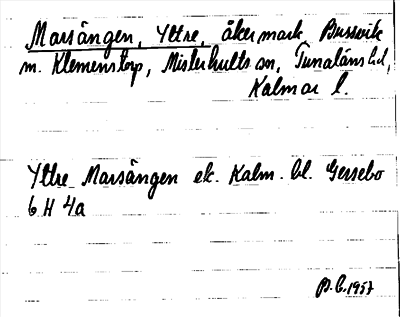 Marsängen, Yttre, åkermark, Bussvik
m. Klemenstorp, Misterhults sn, Tunaläns hd,
Kalmar l.
Yttre Marsängen ek. Kalm. bl. Gersebo
6 H 4a
1957